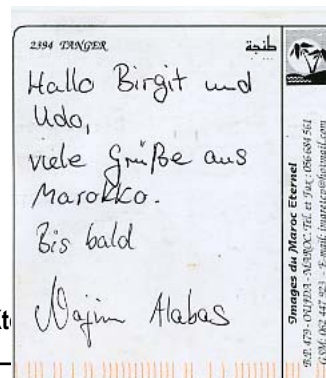 2394 TANGER
طنجة
Hallo Birgit und
Udo,
viele Grüße aus
Marokko.
Bis bald
Najim Alabas
Images du Maroc Eternel
B.P. 479 - OUJDA - MAROC. Tél. et Fax : 056 684 561
GSM: 062 447 923 - E-mail: imaretco@hotmail.com